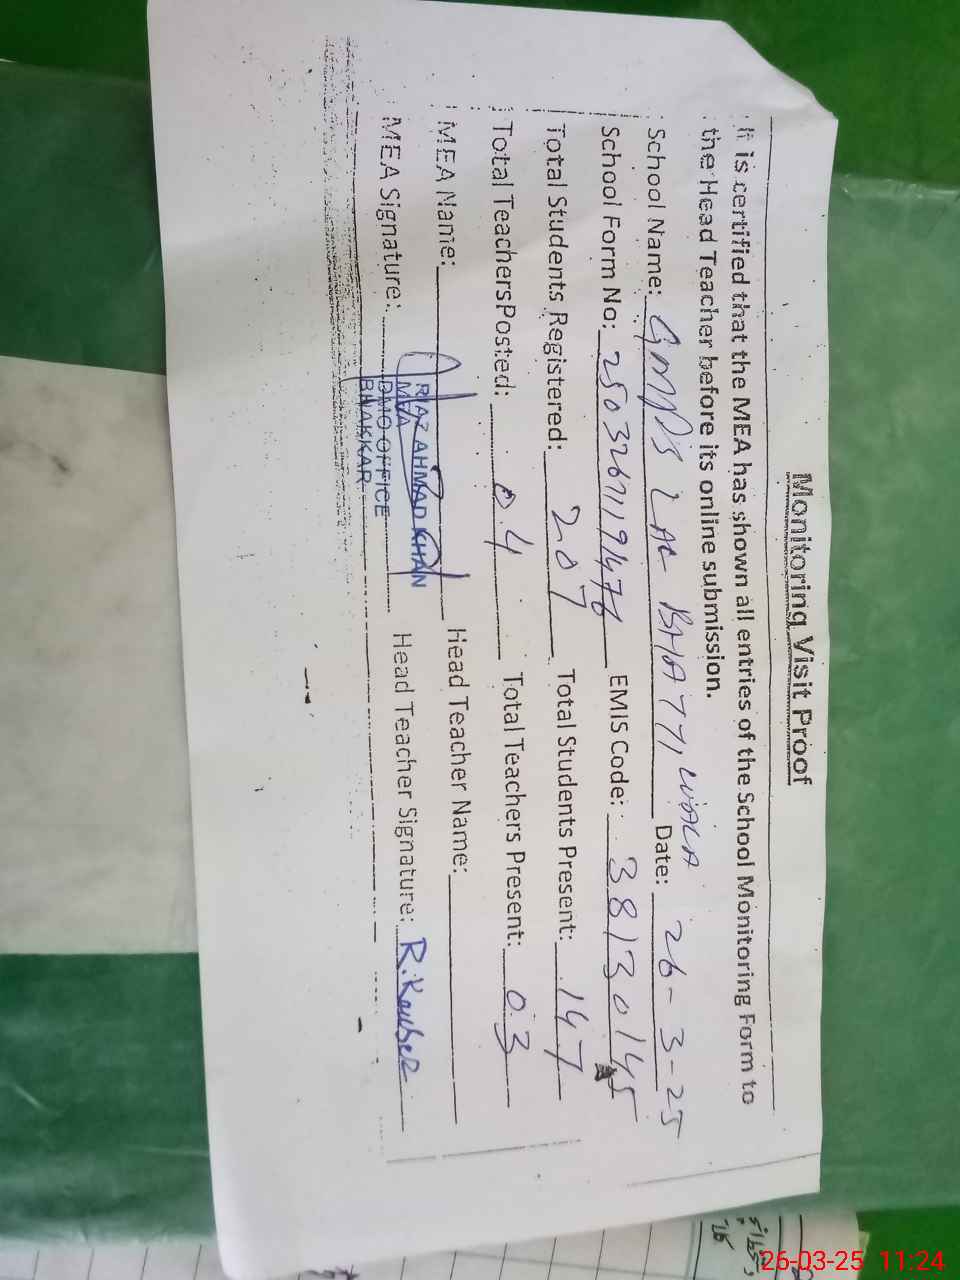 Monitoring Visit Proof
It is certified that the MEA has shown all entries of the School Monitoring Form to
the Head Teacher before its online submission.
School Name: GMPS LAL BHATTI WALA Date: 26-3-25
School Form No: 25032671194 EMIS Code: 38130145
Total Students Registered: 207 Total Students Present: 147
Total Teachers Posted: 04 Total Teachers Present: 03
MEA Name: RIAZ AHMAD KHAN Head Teacher Name:
MEA
MEA Signature: DMO OFFICE Head Teacher Signature: R.Kausar
BHAKKAR
26-03-25 11:24